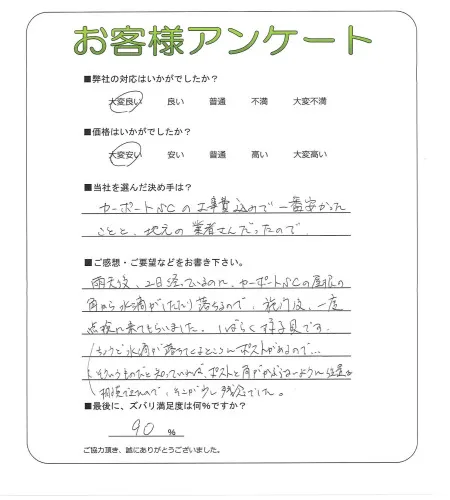 お客様アンケート
■弊社の対応はいかがでしたか？
大変良い 良い 普通 不満 大変不満
■価格はいかがでしたか？
大変安い 安い 普通 高い 大変高い
■当社を選んだ決め手は？
カーポートSCの工事費込みで一番安かった
ことと、地元の業者さんだったので。
■ご感想・ご要望などをお書き下さい。
雨天後、2日経っているのに、カーポートSCの屋根の
角から水滴がしたたり落ちるので、施行後、一度
点検に来てもらいました。しばらく様子見です。
ちょうど水滴が落ちてくるところにポストがあるので…
そういうものだと知っていれば、ポストと角がかぶらないように位置を
相談できたので、そこが少し残念でした。
■最後に、ズバリ満足度は何%ですか？
90 %
ご協力頂き、誠にありがとうございました。